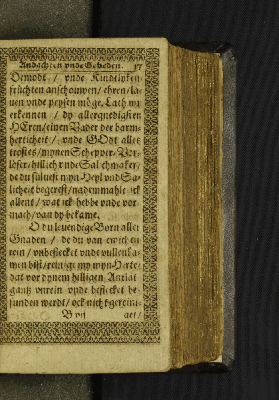 Andachten vnde Gebeden. 37
Demodt / vnde Kindtlyken
früchten anschouwen / ehren / la-
uen vnde prysen möge. Lath my
erkennen / dy allergnedigsten
HEren / einen Vader der barm-
herticheit / vnde GOdt alles
trostes / mynen Schepper / Vor-
löser / hillich vnde Salichmaker /
de du süluest myn Heyl vnd Sa-
licheit begerest / na dem mahle ick
allent / wat ick hebbe vnde vor-
mach / van dy bekame.
O du leuendige Born aller
Gnaden / de du van ewich en
rein / vnbeflecket vnde vullenka-
men bist / reinige my myn Herte
dat vor dynem hilligen Antlat
gantz vnrein vnde beflecket be-
funden werdt / ock nicht gereini-
get /